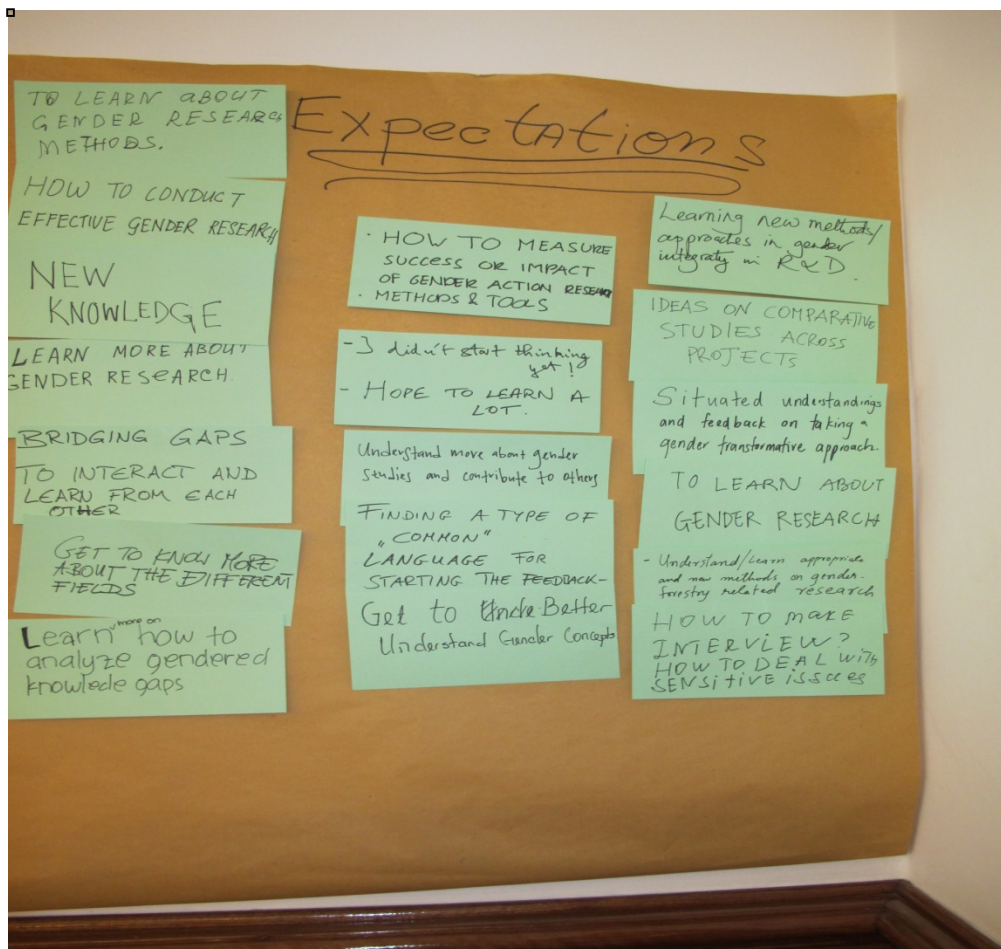 Expectations
TO LEARN aBOUT
GENDER RESEARCH
METHODS.
HOW TO CONDUCT
EFFECTIVE GENDER RESEARCH
NEW
KNOWLEDGE
LEARN MORE ABOUT
GENDER RESEARCH.
BRIDGING GAPS
TO INTERACT AND
LEARN FROM EACH
OTHER
GET TO KNOW MORE
ABOUT THE DIFFERENT
FIELDS
Learn more on how to
analyze gendered
knowlede gaps
· HOW TO MEASURE
SUCCESS OR IMPACT
OF GENDER ACTION RESEARCH
· METHODS & TOOLS
- I didn't start thinking
yet!
- HOPE TO LEARN A
LOT.
Understand more about gender
studies and contribute to others
FINDING A TYPE OF
„COMMON"
LANGUAGE FOR
STARTING THE FEEDBACK-
Get to Better
Understand Gender Concepts
Learning new methods/
approaches in gender
integraty in R&D.
IDEAS ON COMPARATIVE
STUDIES ACROSS
PROJECTS
Situated understandings
and feedback on taking a
gender transformative approach.
TO LEARN ABOUT
GENDER RESEARCH
- Understand/Learn appropriate
and new methods on gender-
forestry related research
HOW TO MAKE
INTERVIEW?
HOW TO DEAL WITH
SENSITIVE ISSUES